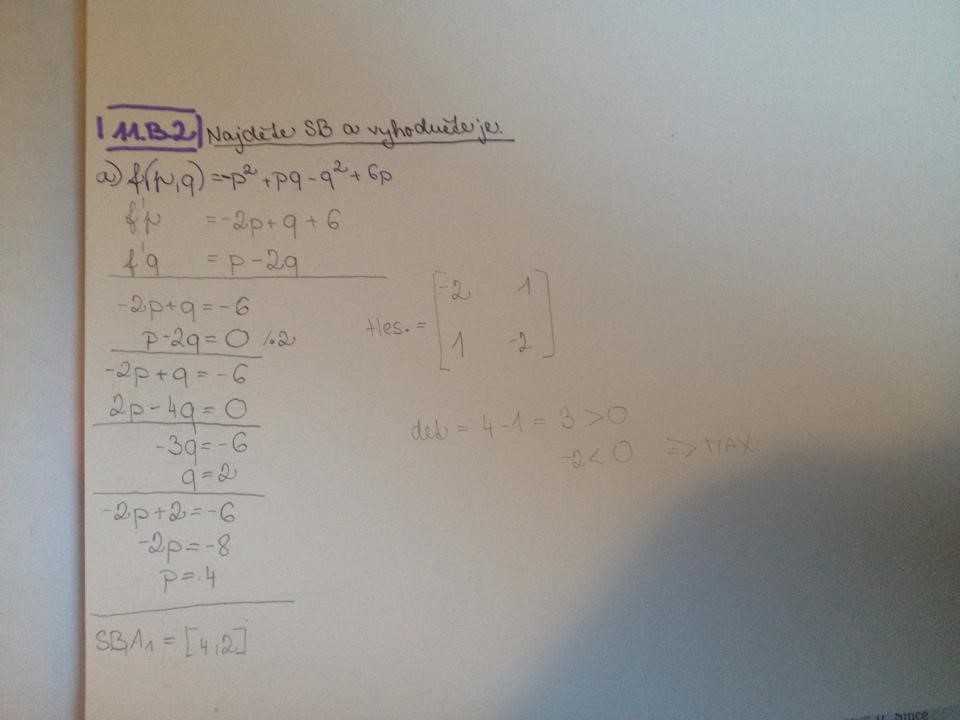 11.B.2 Najděte SB a vyhodnoťte je.
a) f(p,q) = -p² + pq - q² + 6p
f'p = -2p + q + 6
f'q = p - 2q
-2p + q = -6
p - 2q = 0 /·2
-2p + q = -6
2p - 4q = 0
-3q = -6
q = 2
-2p + 2 = -6
-2p = -8
p = 4
SB A₁ = [4,2]
Hes. = [-2 1
1 -2]
det = 4 - 1 = 3 > 0
-2 < 0 => MAX